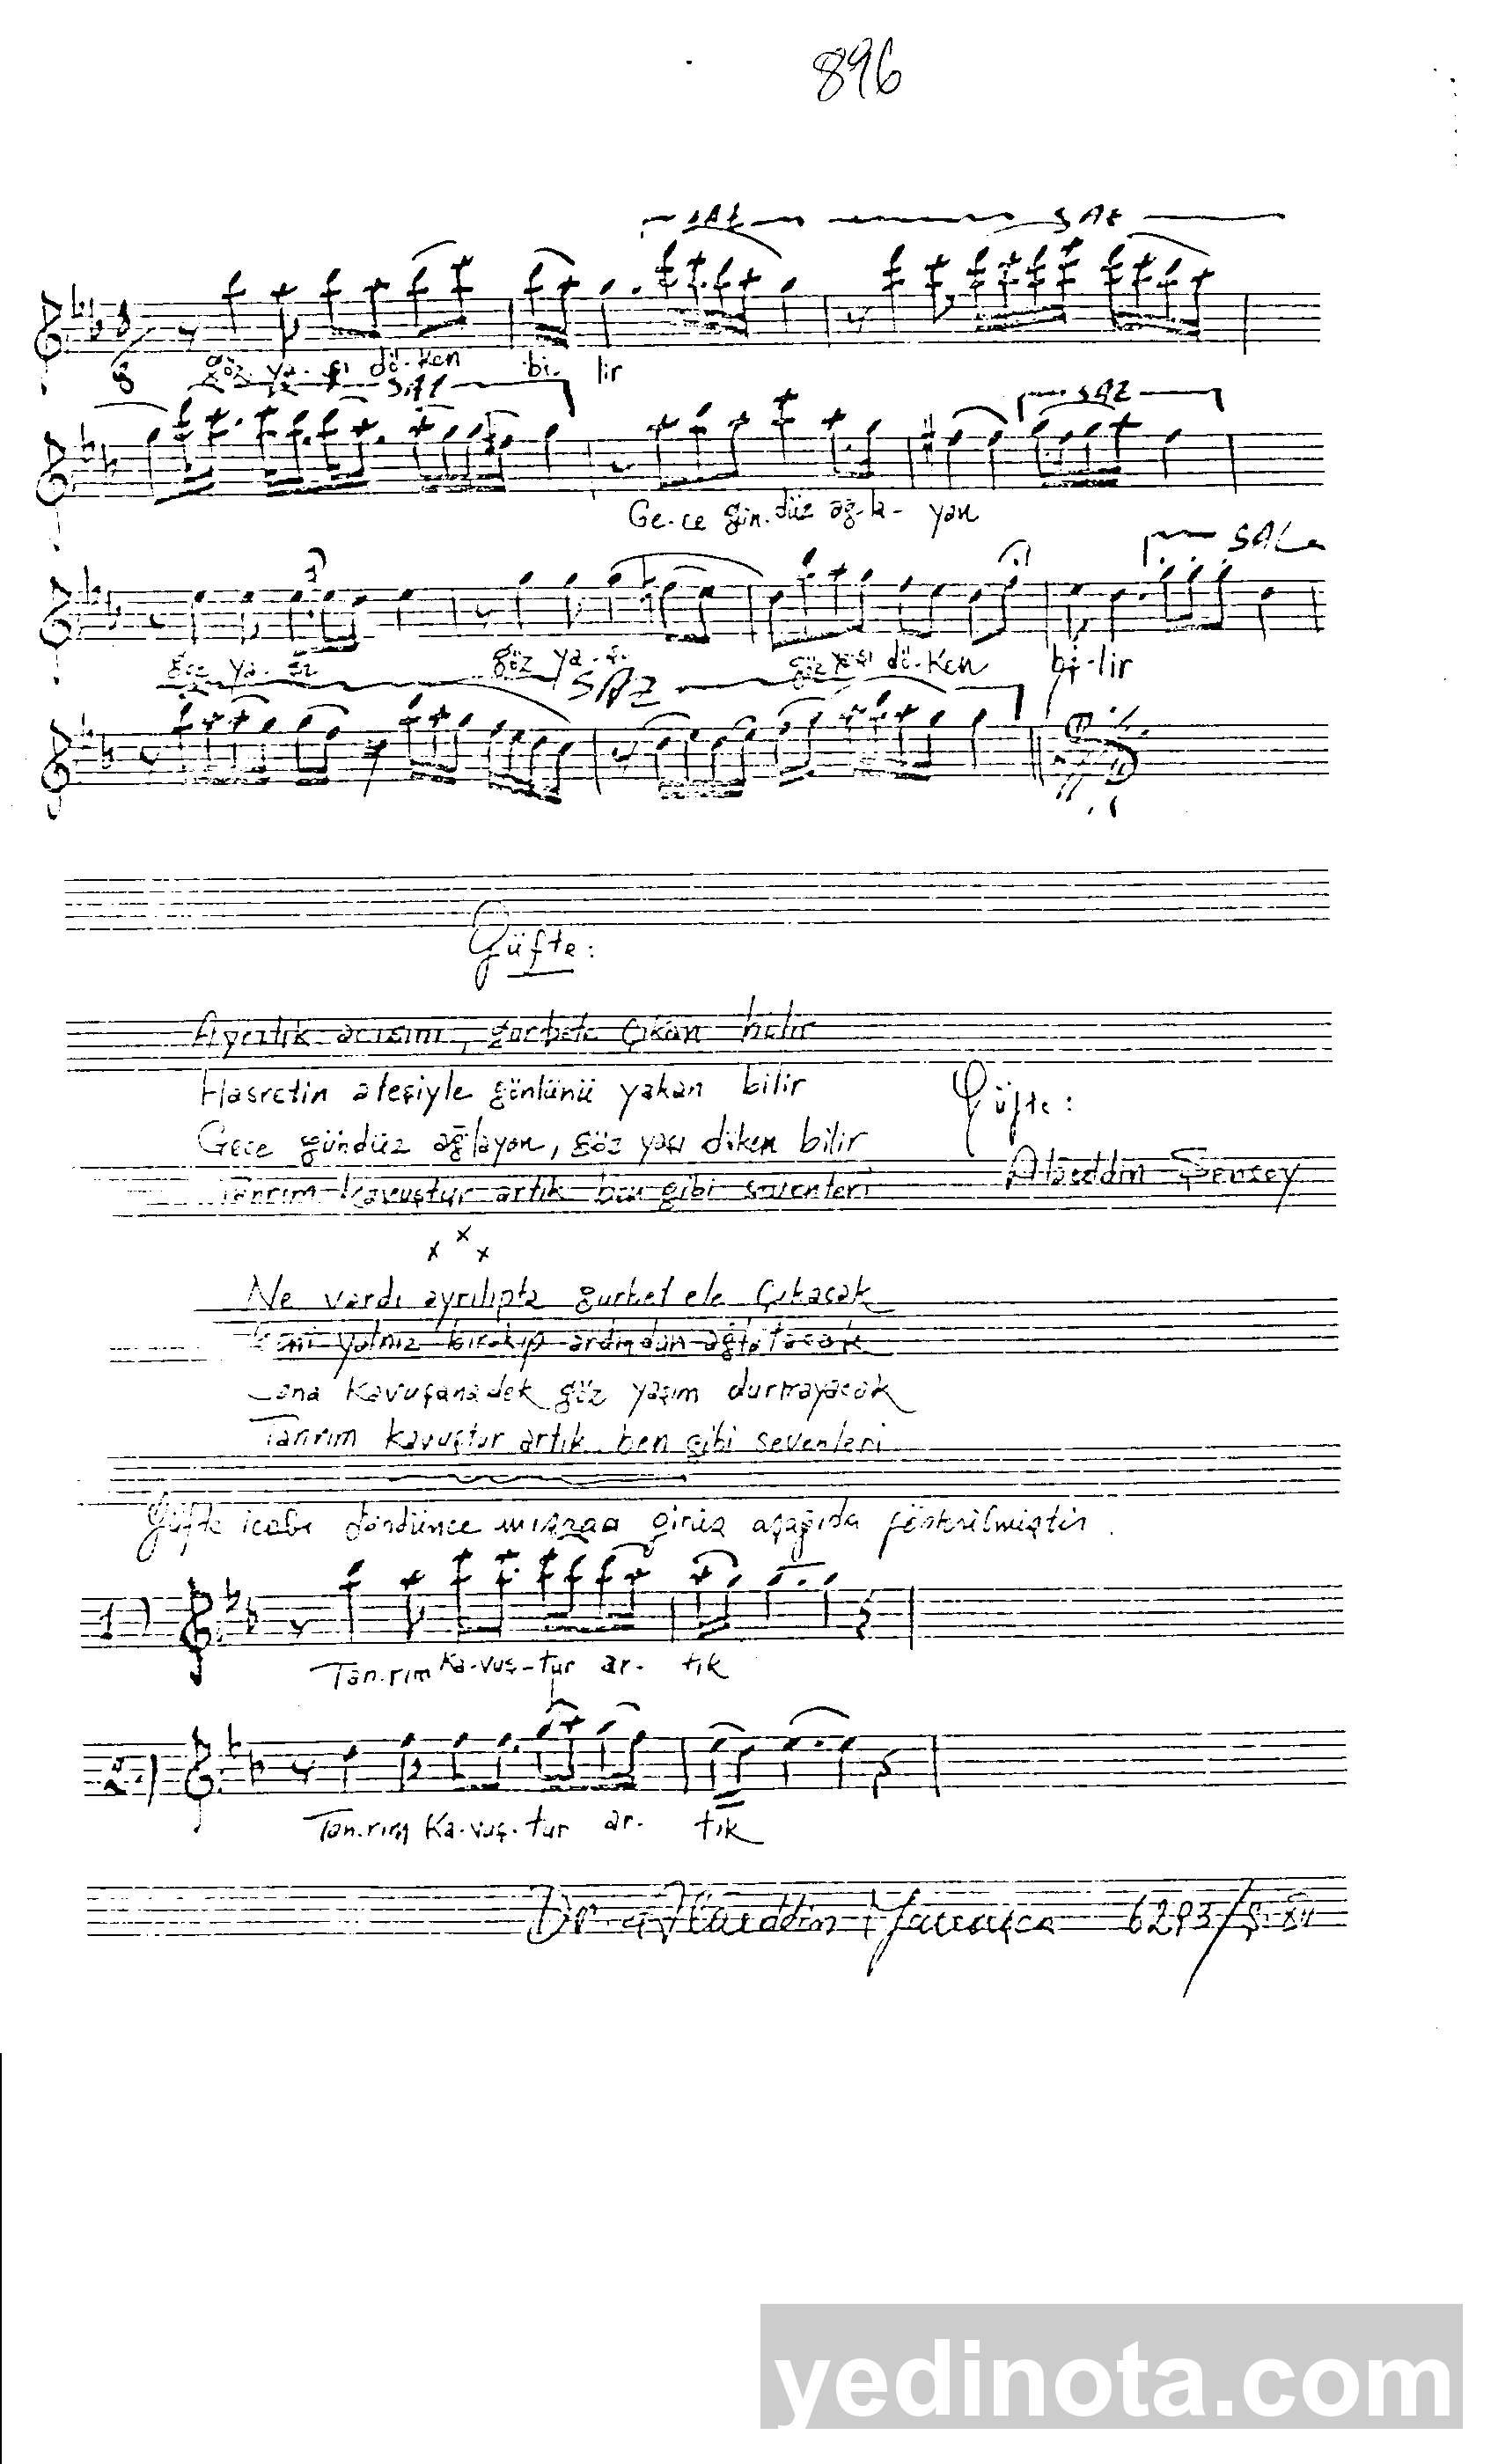 896
SAZ SAZ
8
göz ya- şı dö-ken bi- lir
SAZ SAZ
Ge-ce gün-düz ağ-la- yan
SAZ
göz ya- şı göz ya-şı göz yaşı dö-ken bi-lir
SAZ
Güfte:
Ayrılık acısını, gurbete çıkan bilir
Hasretin ateşiyle gönlünü yakan bilir
Güfte:
Gece gündüz ağlayan, göz yaşı döken bilir
Alaeddin Şensoy
Tanrım kavuştur artık ben gibi sevenleri
x x x
Ne vardı ayrılıpta gurbet ele çıkacak
Beni yalnız bırakıp ardından ağlatacak
Sana kavuşanadek göz yaşım durmayacak
Tanrım kavuştur artık ben gibi sevenleri
Güfte icabı dördünce mısraa giriş aşağıda gösterilmiştir.
1)
Tan-rım Ka-vuş-tur ar- tık
2.)
Tan-rım Ka-vuş-tur ar- tık
Dr. Alaeddin Yavaşça 6293/
yedinota.com